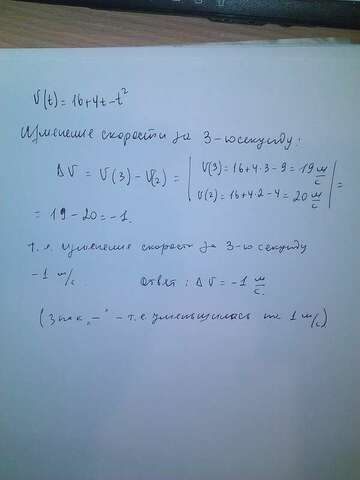 V(t)=16+4t-t²
Изменение скорости за 3-ю секунду:
ΔV = V(3) - V(2) = | V(3) = 16+4·3-9 = 19 м/с
V(2) = 16+4·2-4 = 20 м/с | =
= 19-20 = -1.
т.е. изменения скорости за 3-ю секунду
-1 м/с. Ответ: ΔV = -1 м/с.
(Знак „-" - т.е. уменьшилась на 1 м/с)